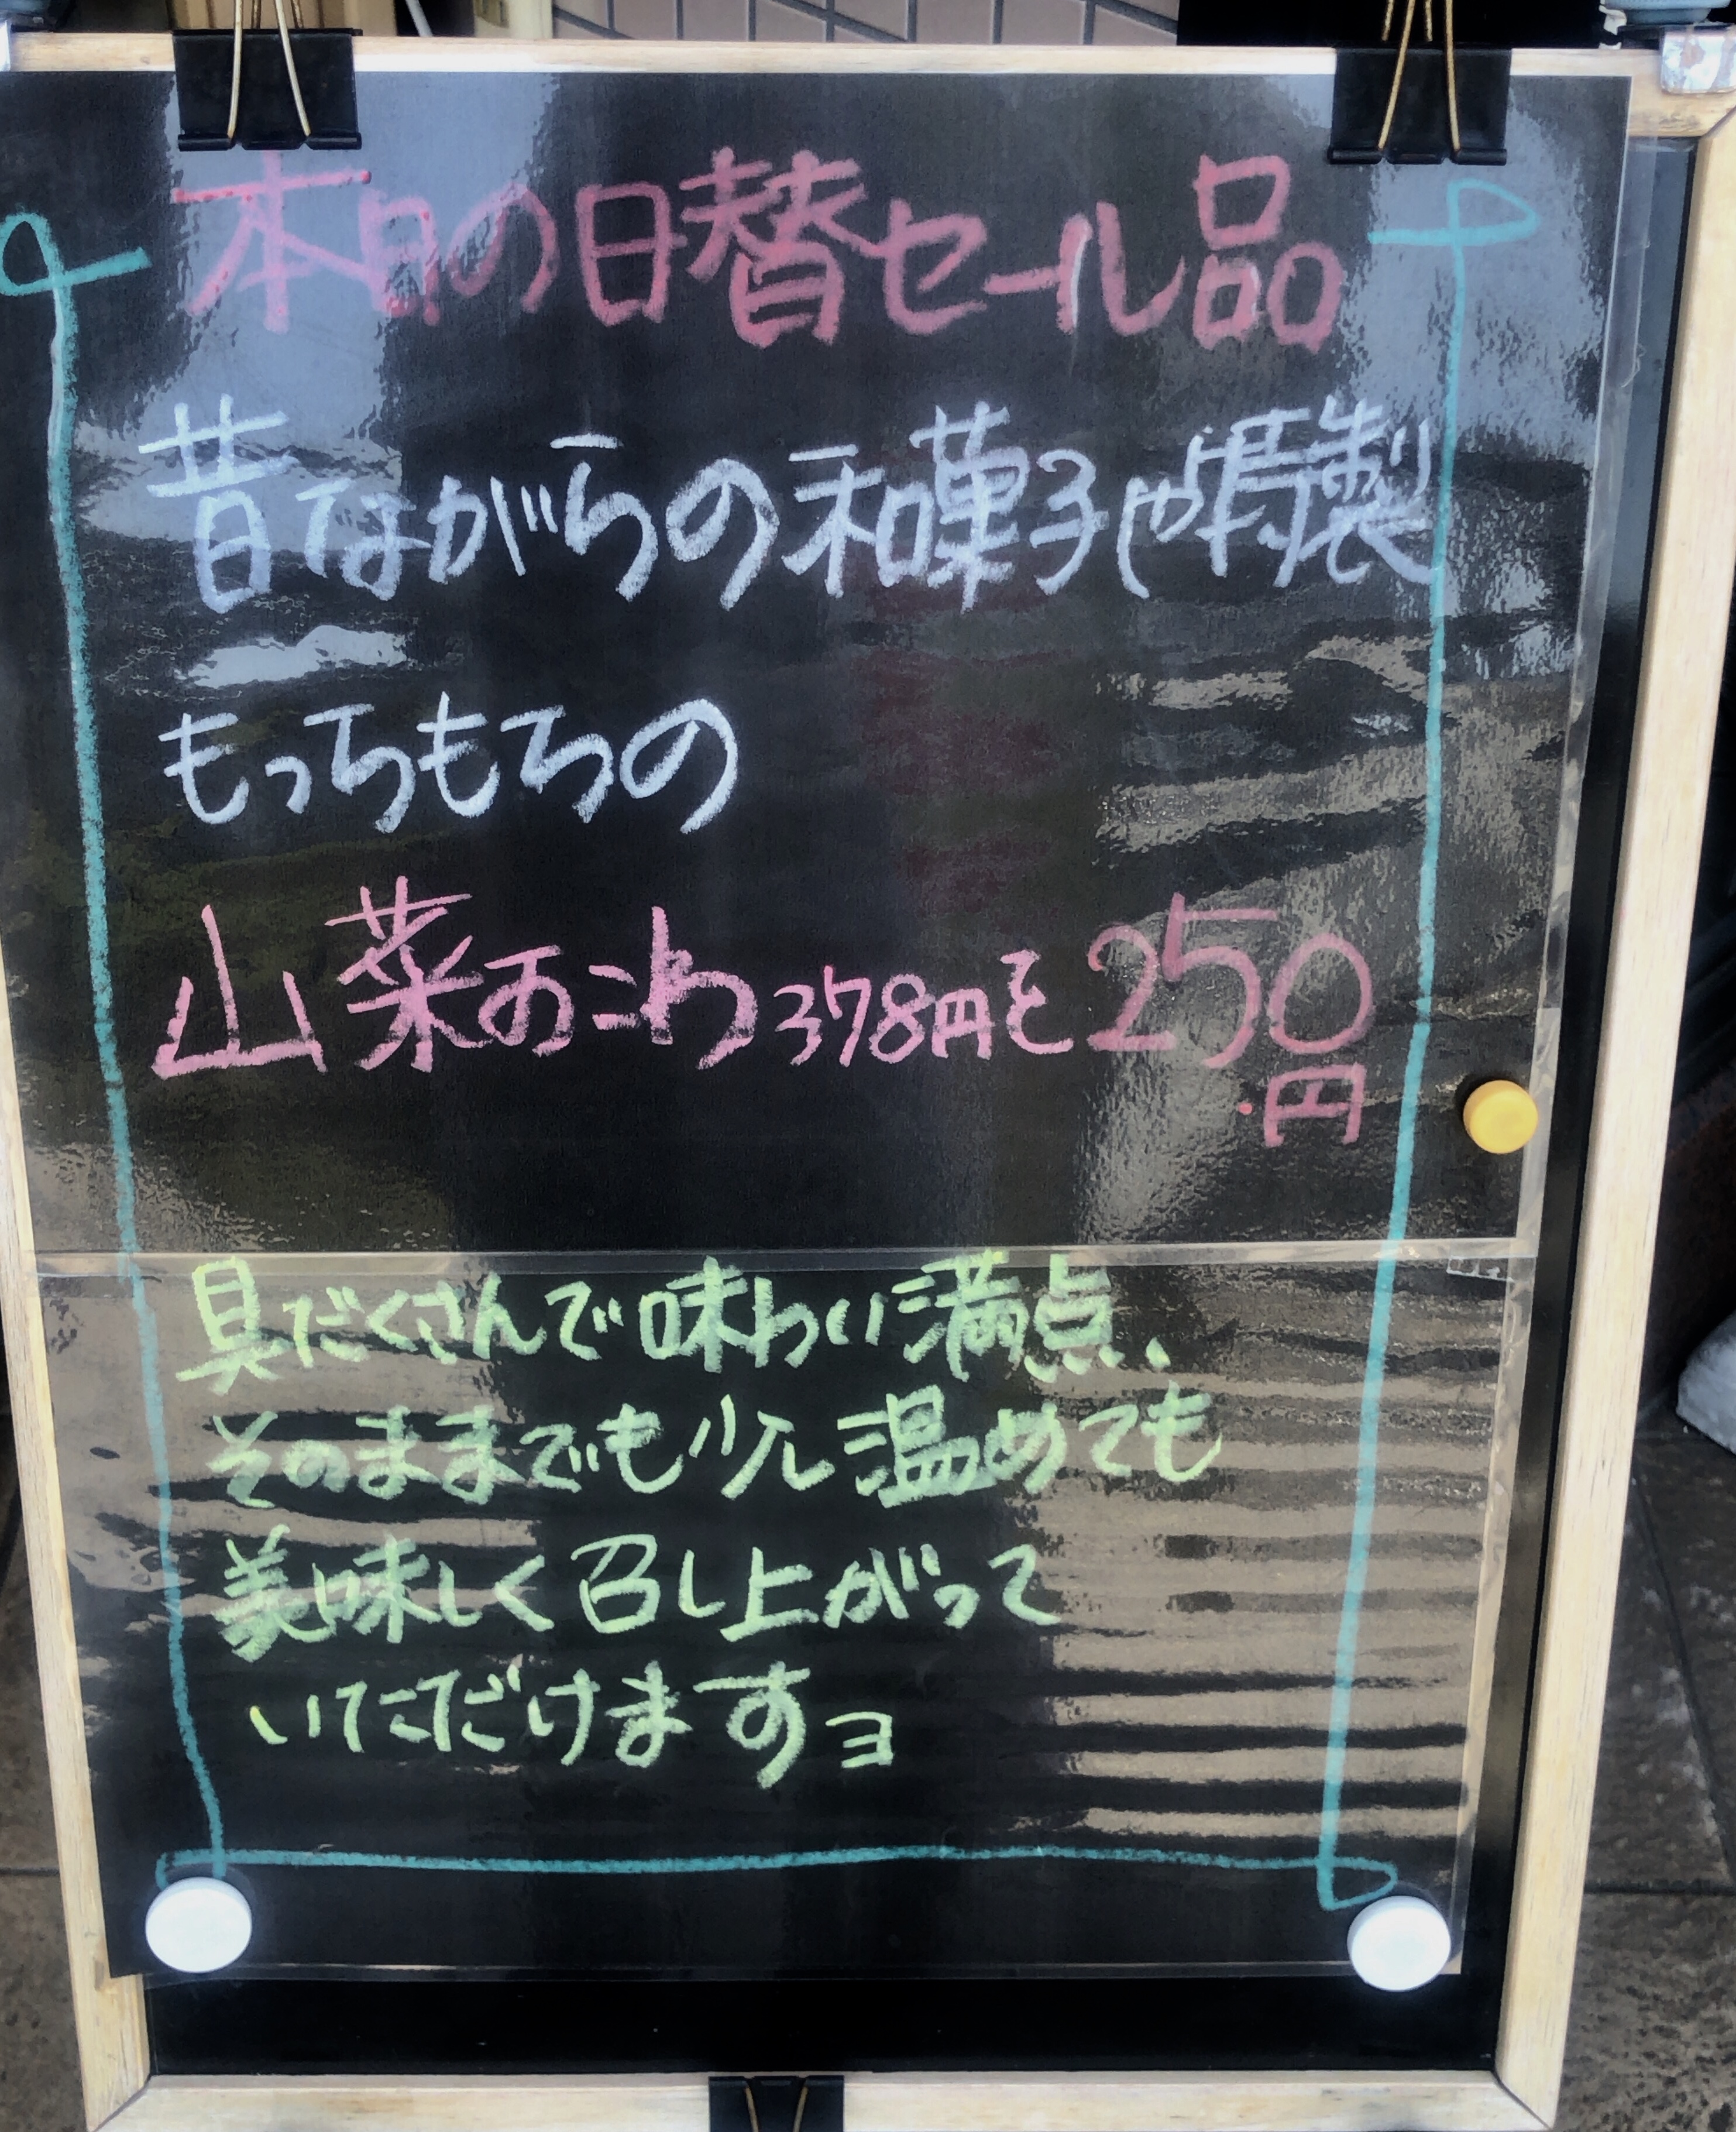 本日の日替セール品
昔ながらの和菓子や特製
もっちもちの
山菜おこわ378円を250円
具だくさんで味わい満点、
そのままでも少し温めても
美味しく召し上がって
いただけますヨ